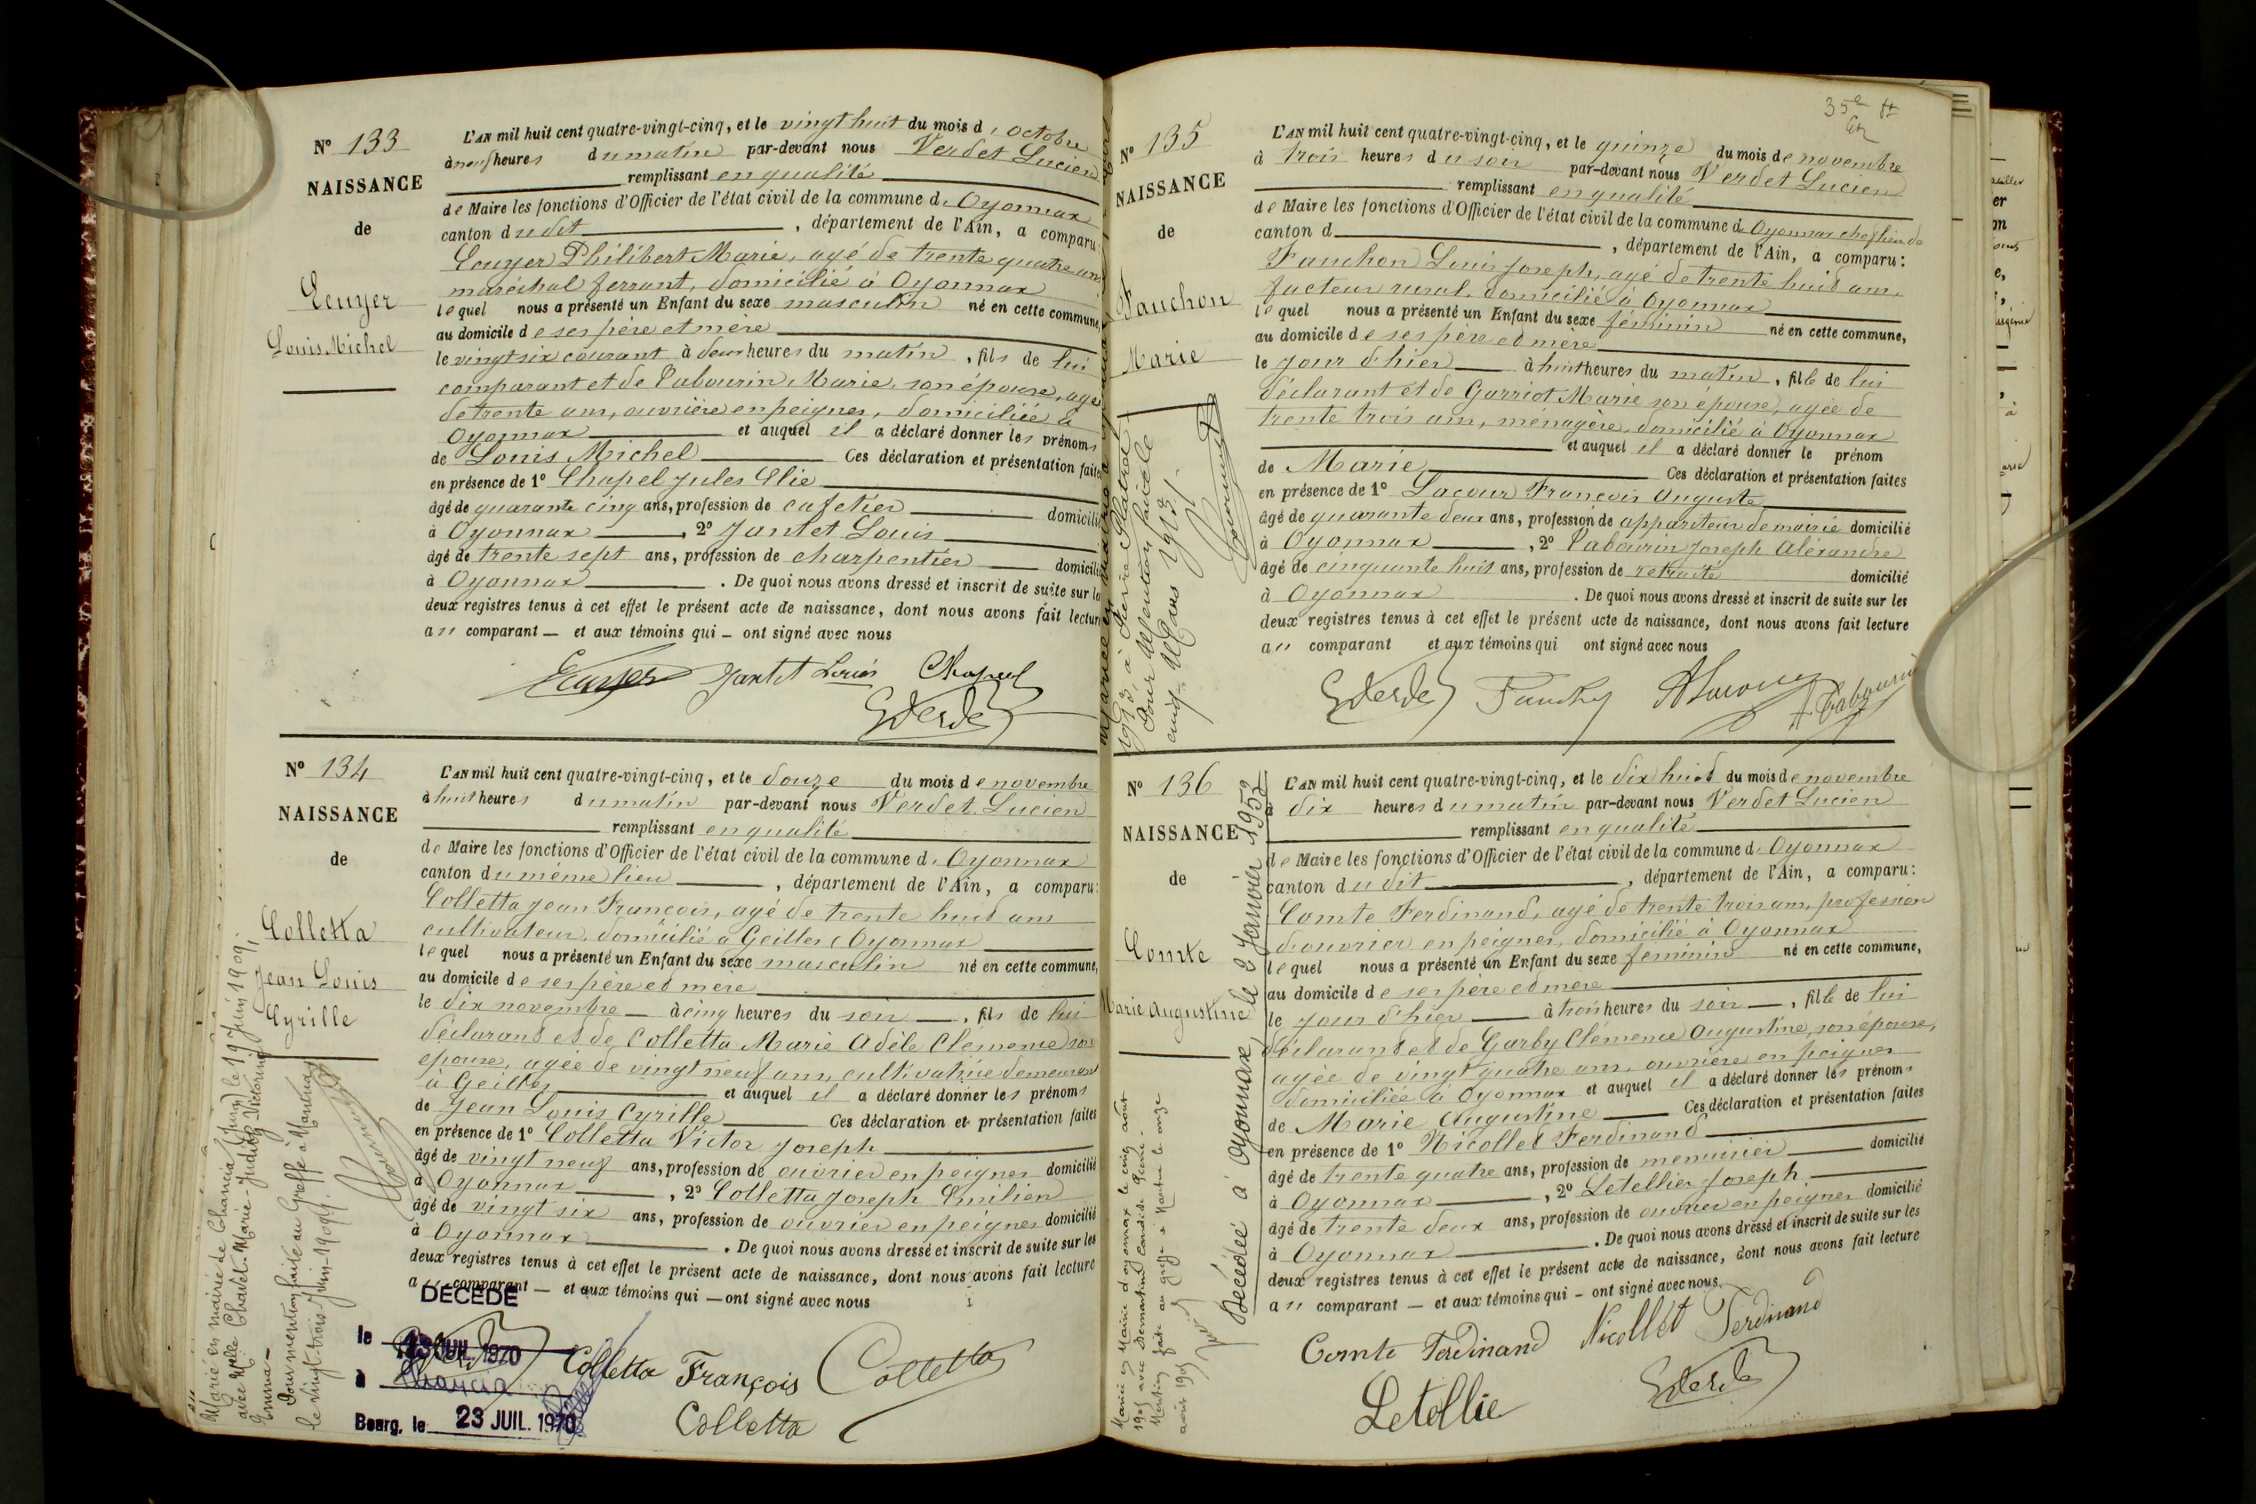 N° 133
NAISSANCE
de
Ecuyer
Louis Michel
L'AN mil huit cent quatre-vingt-cinq, et le vingt huit du mois d'octobre
à neuf heures du matin par-devant nous Verdet Lucien
remplissant en qualité
de Maire les fonctions d'Officier de l'état civil de la commune d'Oyonnax
canton dudit, département de l'Ain, a comparu:
Ecuyer Philibert Marie, agé de trente quatre ans
maréchal ferrant, domicilié à Oyonnax
lequel nous a présenté un Enfant du sexe masculin né en cette commune,
au domicile de ses père et mère
le vingt six courant à deux heures du matin, fils de lui
comparant et de Tabourin Marie, son épouse, agée
de trente ans, ouvrière en peignes, domiciliée à
Oyonnax et auquel il a déclaré donner les prénoms
de Louis Michel Ces déclaration et présentation faites
en présence de 1° Chapel Jules Elie
âgé de quarante cinq ans, profession de cafetier domicilié
à Oyonnax, 2° Jantet Louis
âgé de trente sept ans, profession de charpentier domicilié
à Oyonnax. De quoi nous avons dressé et inscrit de suite sur les
deux registres tenus à cet effet le présent acte de naissance, dont nous avons fait lecture
au comparant — et aux témoins qui — ont signé avec nous
Ecuyer Jantet Louis Chapel
Verdet
N° 134
NAISSANCE
de
Colletta
Jean Louis
Cyrille
L'AN mil huit cent quatre-vingt-cinq, et le douze du mois de novembre
à huit heures du matin par-devant nous Verdet Lucien
remplissant en qualité
de Maire les fonctions d'Officier de l'état civil de la commune d'Oyonnax
canton du même lieu, département de l'Ain, a comparu:
Colletta Jean François, agé de trente huit ans
cultivateur, domicilié à Geilles (Oyonnax
lequel nous a présenté un Enfant du sexe masculin né en cette commune,
au domicile de ses père et mère
le dix novembre — à cinq heures du soir —, fils de lui
déclarant et de Colletta Marie Adèle Clémence son
épouse, agée de vingt neuf ans, cultivatrice demeurant
à Geilles et auquel il a déclaré donner les prénoms
de Jean Louis Cyrille Ces déclaration et présentation faites
en présence de 1° Colletta Victor Joseph
âgé de vingt neuf ans, profession de ouvrier en peignes domicilié
à Oyonnax, 2° Colletta Joseph Emilien
âgé de vingt six ans, profession de ouvrier en peignes domicilié
à Oyonnax. De quoi nous avons dressé et inscrit de suite sur les
deux registres tenus à cet effet le présent acte de naissance, dont nous avons fait lecture
au comparant — et aux témoins qui — ont signé avec nous
DÉCÉDÉ
le 13 JUIL. 1970
à Chancia
Bourg, le 23 JUIL. 1970
Colletta François Colletta
Colletta
Marié en mairie de Chancia (Jura) le 19 Juin 1909,
avec Melle Chavet Marie-Judith-Victorine
Emma-
Pour mention faite au Greffe à Nantua
le vingt-trois Juin 1909.
35e ft
N° 135
NAISSANCE
de
Fauchon
Marie
L'AN mil huit cent quatre-vingt-cinq, et le quinze du mois de novembre
à trois heures du soir par-devant nous Verdet Lucien
remplissant en qualité
de Maire les fonctions d'Officier de l'état civil de la commune d'Oyonnax chef lieu de
canton d, département de l'Ain, a comparu:
Fauchon Louis Joseph, agé de trente huit ans,
facteur rural, domicilié à Oyonnax
lequel nous a présenté un Enfant du sexe féminin né en cette commune,
au domicile de ses père et mère
le jour d'hier à huit heures du matin, fille de lui
déclarant et de Garriot Marie son épouse, agée de
trente trois ans, ménagère, domicilié à Oyonnax
et auquel il a déclaré donner le prénom
de Marie Ces déclaration et présentation faites
en présence de 1° Lacour François Auguste
âgé de quarante deux ans, profession de appariteur de mairie domicilié
à Oyonnax, 2° Tabourin Joseph Alexandre
âgé de cinquante huit ans, profession de retraité domicilié
à Oyonnax. De quoi nous avons dressé et inscrit de suite sur les
deux registres tenus à cet effet le présent acte de naissance, dont nous avons fait lecture
au comparant et aux témoins qui ont signé avec nous
Verdet Fauchon A Lacour A. Tabourin
1913, à Pierre Chatrol
Pour Mention faite le
cinq Mars 1913.
N° 136
NAISSANCE
de
Comte
Marie Augustine
L'AN mil huit cent quatre-vingt-cinq, et le dix huit du mois de novembre
à dix heures du matin par-devant nous Verdet Lucien
remplissant en qualité
de Maire les fonctions d'Officier de l'état civil de la commune d'Oyonnax
canton dudit, département de l'Ain, a comparu:
Comte Ferdinand, agé de trente trois ans, profession
d'ouvrier en peignes, domicilié à Oyonnax
lequel nous a présenté un Enfant du sexe féminin né en cette commune,
au domicile de ses père et mère
le jour d'hier à trois heures du soir —, fille de lui
déclarant et de Garby Clémence Augustine, son épouse,
agée de vingt quatre ans, ouvrière en peignes
domiciliée à Oyonnax et auquel il a déclaré donner les prénoms
de Marie Augustine Ces déclaration et présentation faites
en présence de 1° Nicollet Ferdinand
âgé de trente quatre ans, profession de menuisier domicilié
à Oyonnax, 2° Letellier Joseph
âgé de trente deux ans, profession de ouvrier en peignes domicilié
à Oyonnax. De quoi nous avons dressé et inscrit de suite sur les
deux registres tenus à cet effet le présent acte de naissance, dont nous avons fait lecture
au comparant — et aux témoins qui — ont signé avec nous.
Comte Ferdinand Nicollet Ferdinand
Letellie Verdet
Décédée à Oyonnax le 2 Janvier 1952
Mariée en Mairie d'Oyonnax le cinq août
1905 avec Dermartin Candide
Mention faite au greffe à Nantua le onze
août 1905